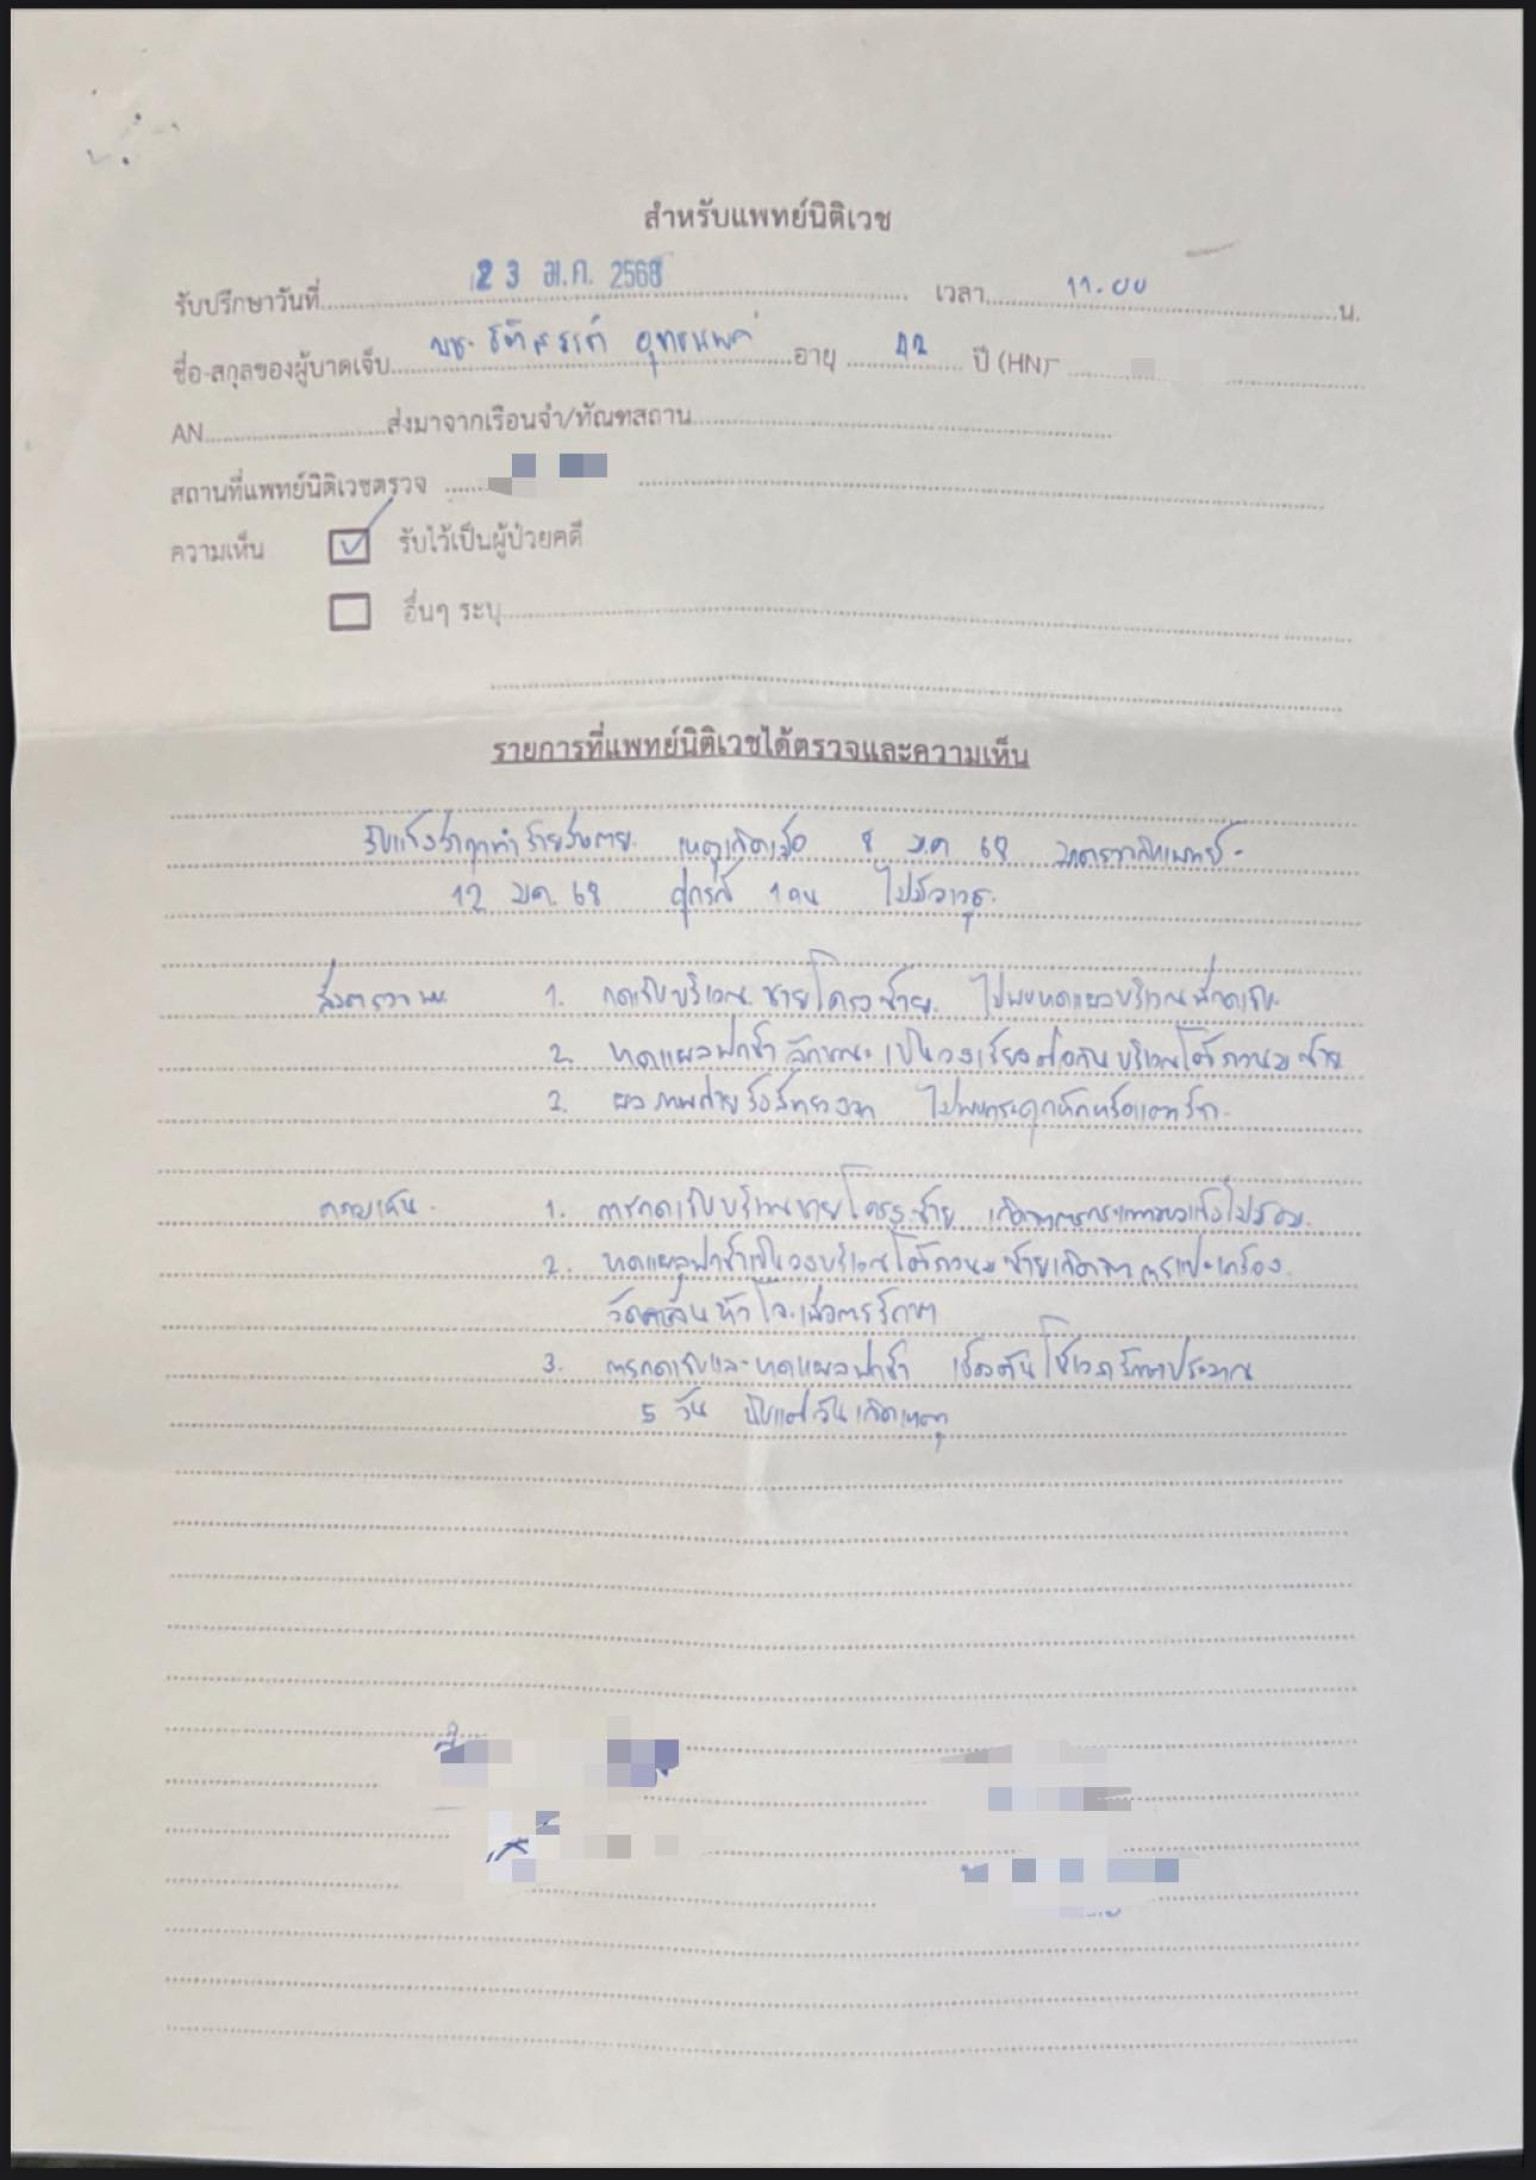 สำหรับแพทย์นิติเวช
รับปรึกษาวันที่ 23 ม.ค. 2568 เวลา 11.00 น.
ชื่อ-สกุลของผู้บาดเจ็บ อายุ 42 ปี (HN)
AN ส่งมาจากเรือนจำ/ทัณฑสถาน
สถานที่แพทย์นิติเวชตรวจ
ความเห็น รับไว้เป็นผู้ป่วยคดี
อื่นๆ ระบุ
รายการที่แพทย์นิติเวชได้ตรวจและความเห็น
รับแจ้งว่าถูกทำร้ายร่างกาย เหตุเกิดเมื่อ 8 ม.ค 68 มาตรวจกับแพทย์
12 ม.ค. 68 คู่กรณี 1 คน ไม่มีอาวุธ
สิ่งตรวจพบ 1. กดเจ็บบริเวณชายโครงซ้าย ไม่พบบาดแผลบริเวณที่กดเจ็บ
2. บาดแผลฟกช้ำ ลักษณะเป็นวงเรียงต่อกันบริเวณใต้ราวนมซ้าย
3. ผลภาพถ่ายรังสีทรวงอก ไม่พบกระดูกหักหรือแตกร้าว
ความเห็น 1. การกดเจ็บบริเวณชายโครงซ้าย เกิดจากการกระแทกของแข็งไม่มีคม
2. บาดแผลฟกช้ำเป็นวงบริเวณใต้ราวนมซ้ายเกิดจากการแปะเครื่อง
วัดคลื่นหัวใจเพื่อการรักษา
3. การกดเจ็บและบาดแผลฟกช้ำ เบื้องต้นใช้เวลารักษาประมาณ
5 วัน นับแต่วันเกิดเหตุ